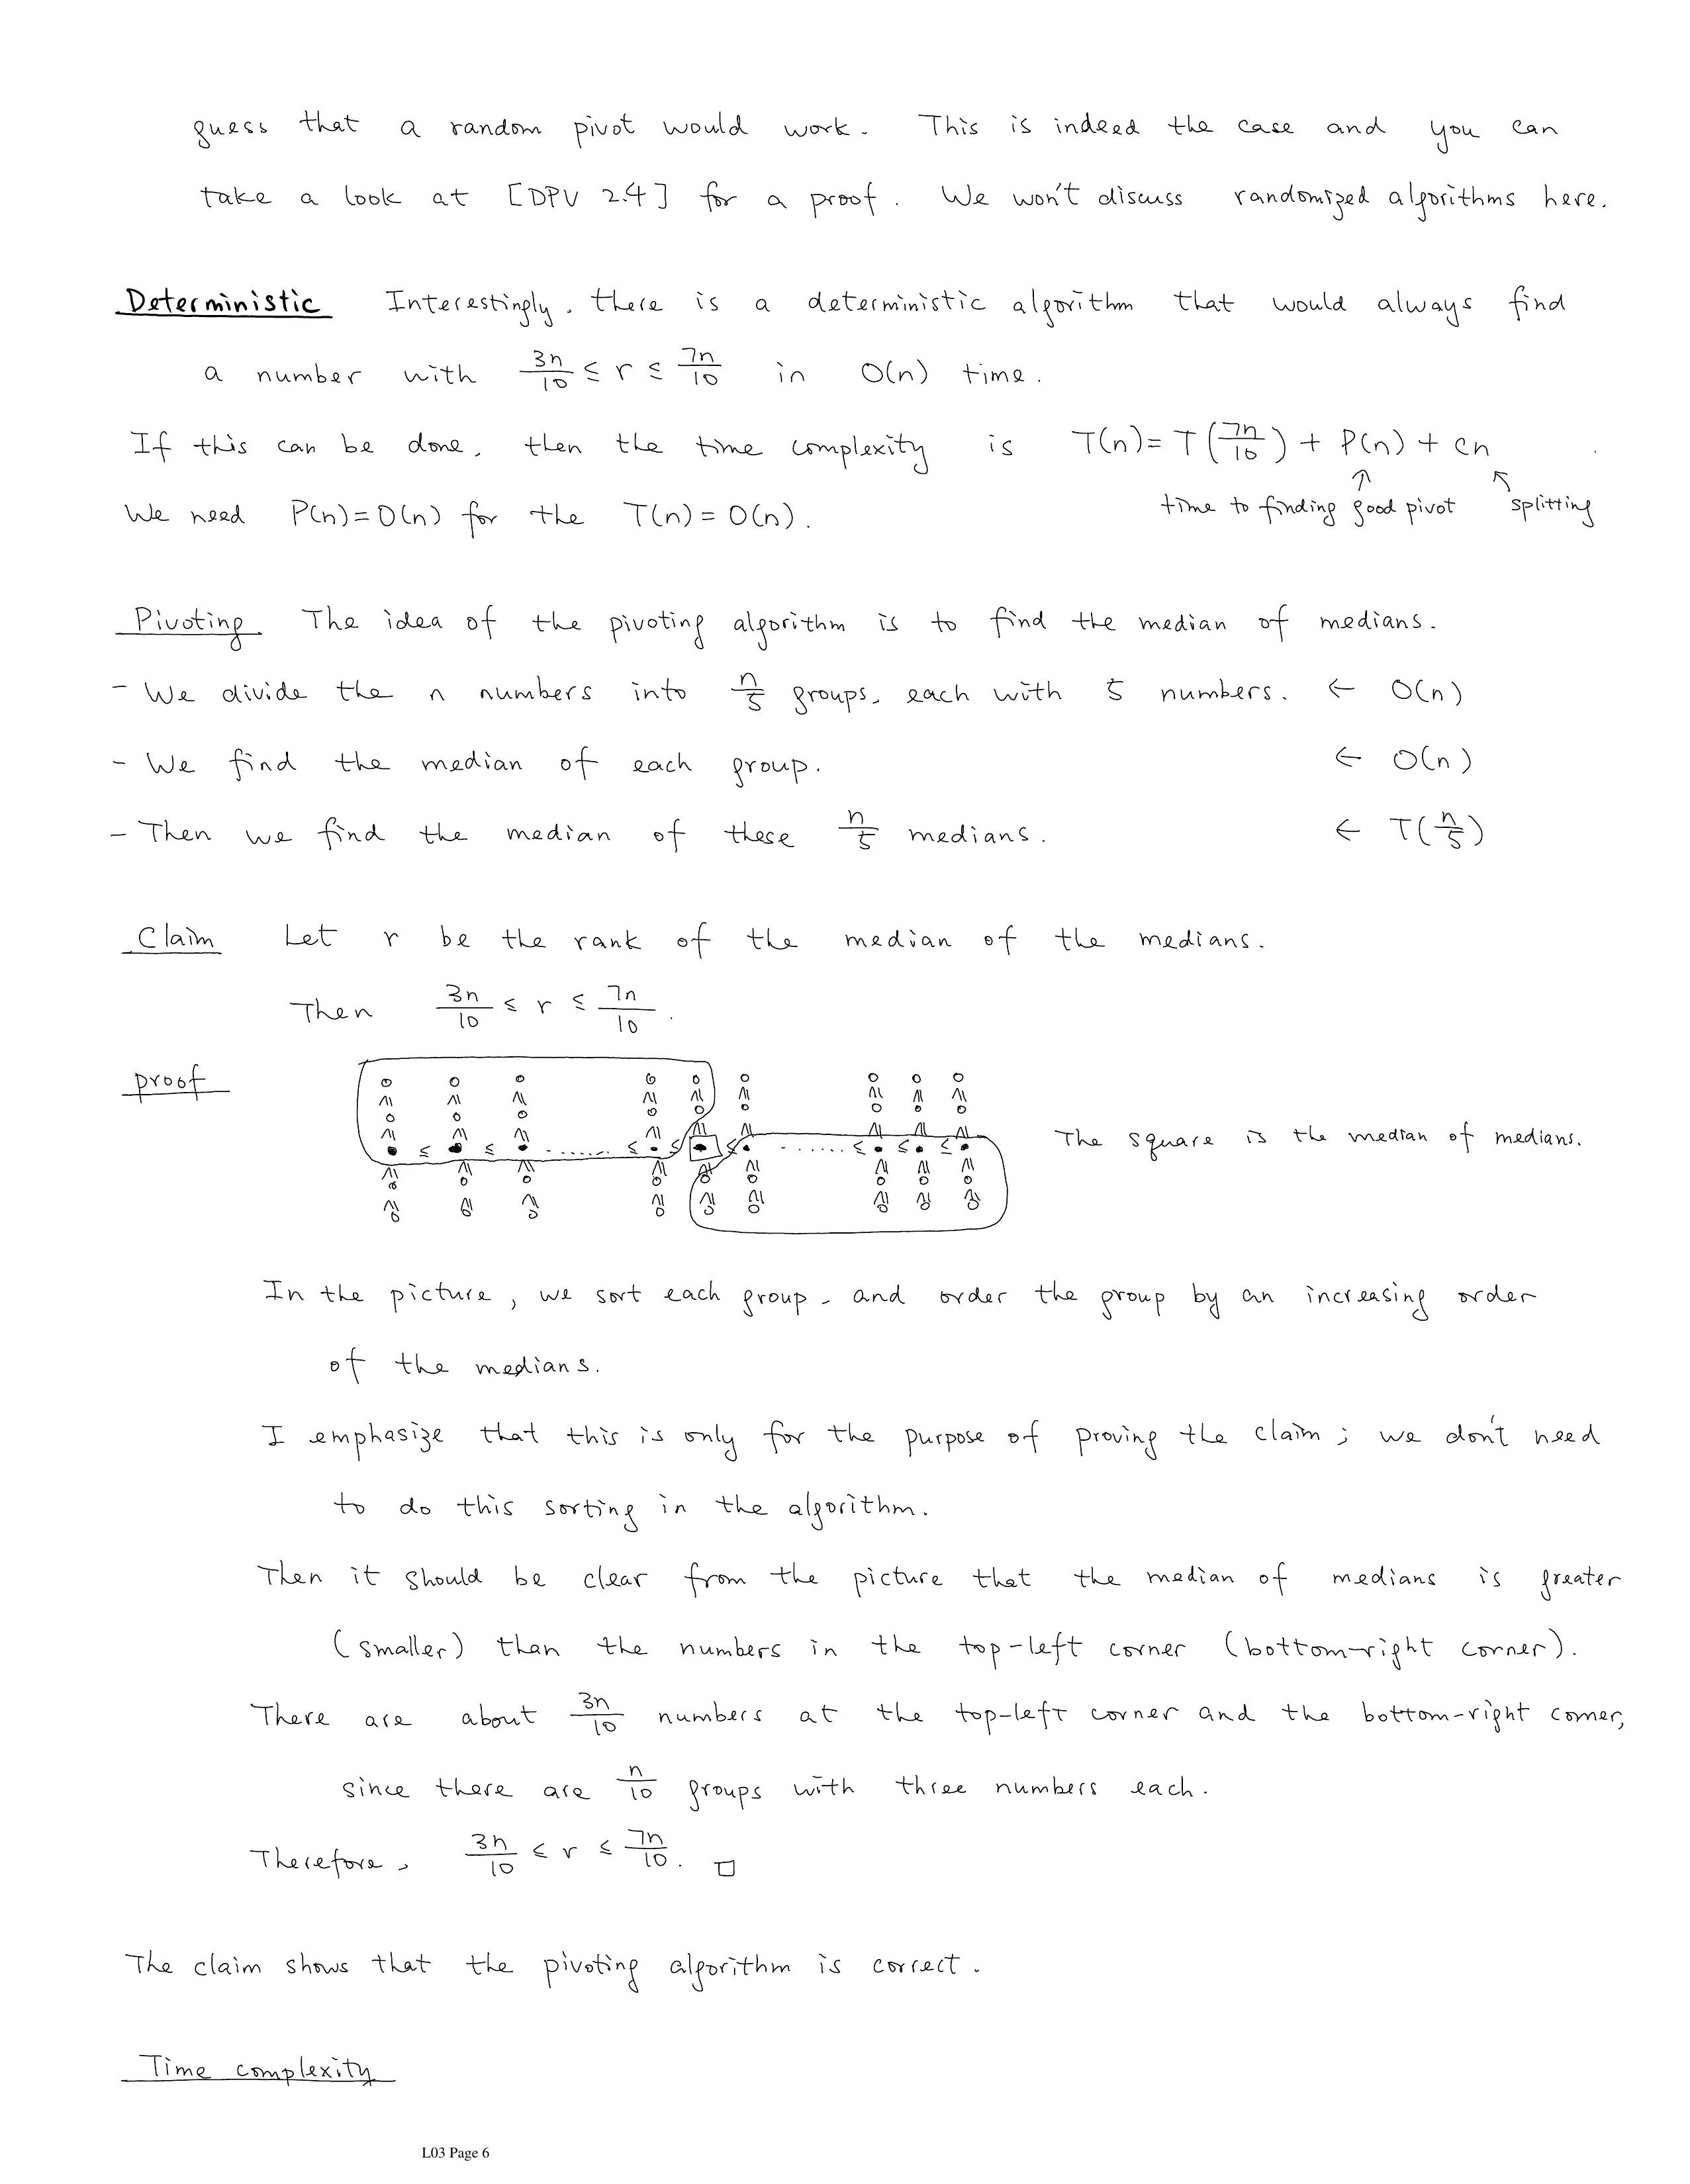 guess that a random pivot would work. This is indeed the case and you can
take a look at [DPV 2.4] for a prof. We won't discuss randomized algorithms here.
Deterministic Interestingly, there is a deterministic algorithm that would always find
a number with 3n/10 ≤ r ≤ 7n/10 in O(n) time.
If this can be done, then the time complexity is T(n)= T(7n/10) + P(n) + cn
↑ time to finding good pivot ↖ splitting
We need P(n)=O(n) for the T(n)=O(n).
Pivoting The idea of the pivoting algorithm is to find the median of medians.
- We divide the n numbers into n/5 groups, each with 5 numbers. ← O(n)
- We find the median of each group. ← O(n)
- Then we find the median of these n/5 medians. ← T(n/5)
Claim Let r be the rank of the median of the medians.
Then 3n/10 ≤ r ≤ 7n/10.
proof
The square is the median of medians.
In the picture, we sort each group, and order the group by an increasing order
of the medians.
I emphasize that this is only for the purpose of proving the claim; we don't need
to do this sorting in the algorithm.
Then it should be clear from the picture that the median of medians is greater
(smaller) than the numbers in the top-left corner (bottom-right corner).
There are about 3n/10 numbers at the top-left corner and the bottom-right corner,
since there are n/10 groups with three numbers each.
Therefore, 3n/10 ≤ r ≤ 7n/10. □
The claim shows that the pivoting algorithm is correct.
Time complexity
L03 Page 6